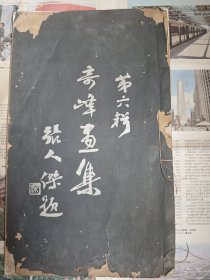 第六輯
奇峰畫集
張人傑題